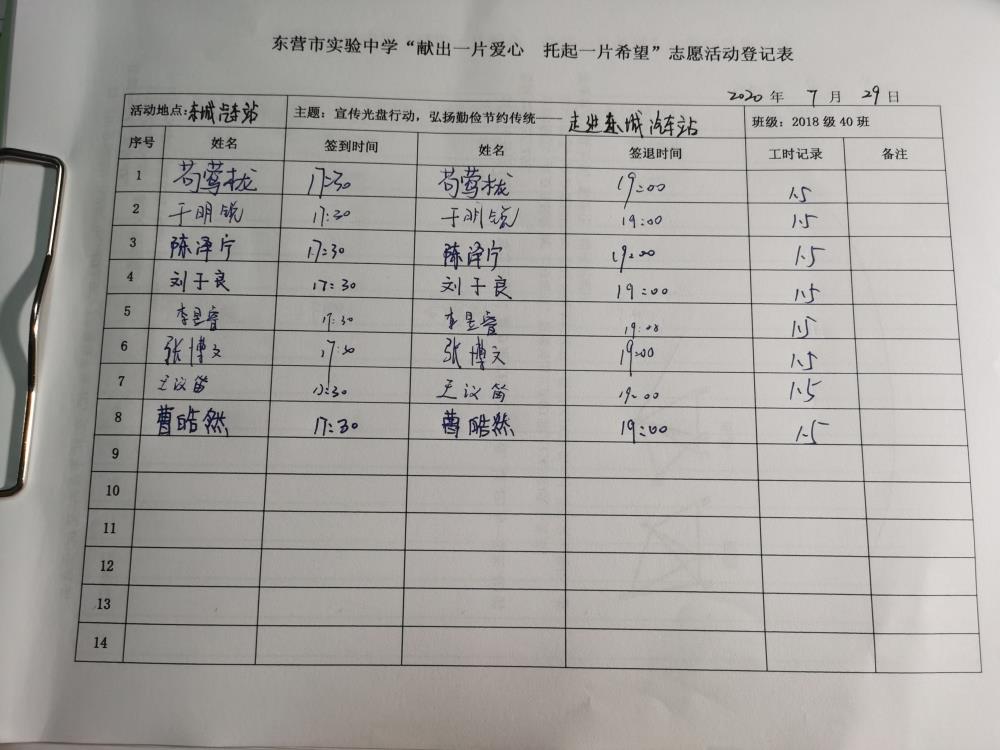 东营市实验中学“献出一片爱心 托起一片希望”志愿活动登记表
2020 年 7 月 29 日
活动地点:东城汽车站 主题：宣传光盘行动，弘扬勤俭节约传统——走进东城汽车站 班级：2018 级 40 班
序号 姓名 签到时间 姓名 签退时间 工时记录 备注
1 苟莺栊 17:30 苟莺栊 19:00 1.5
2 于明锐 17:30 于明锐 19:00 1.5
3 陈泽宁 17:30 陈泽宁 19:00 1.5
4 刘于良 17:30 刘于良 19:00 1.5
5 李昱睿 17:30 李昱睿 19:00 1.5
6 张博文 17:30 张博文 19:00 1.5
7 王议笛 17:30 王议笛 19:00 1.5
8 曹皓然 17:30 曹皓然 19:00 1.5
9
10
11
12
13
14